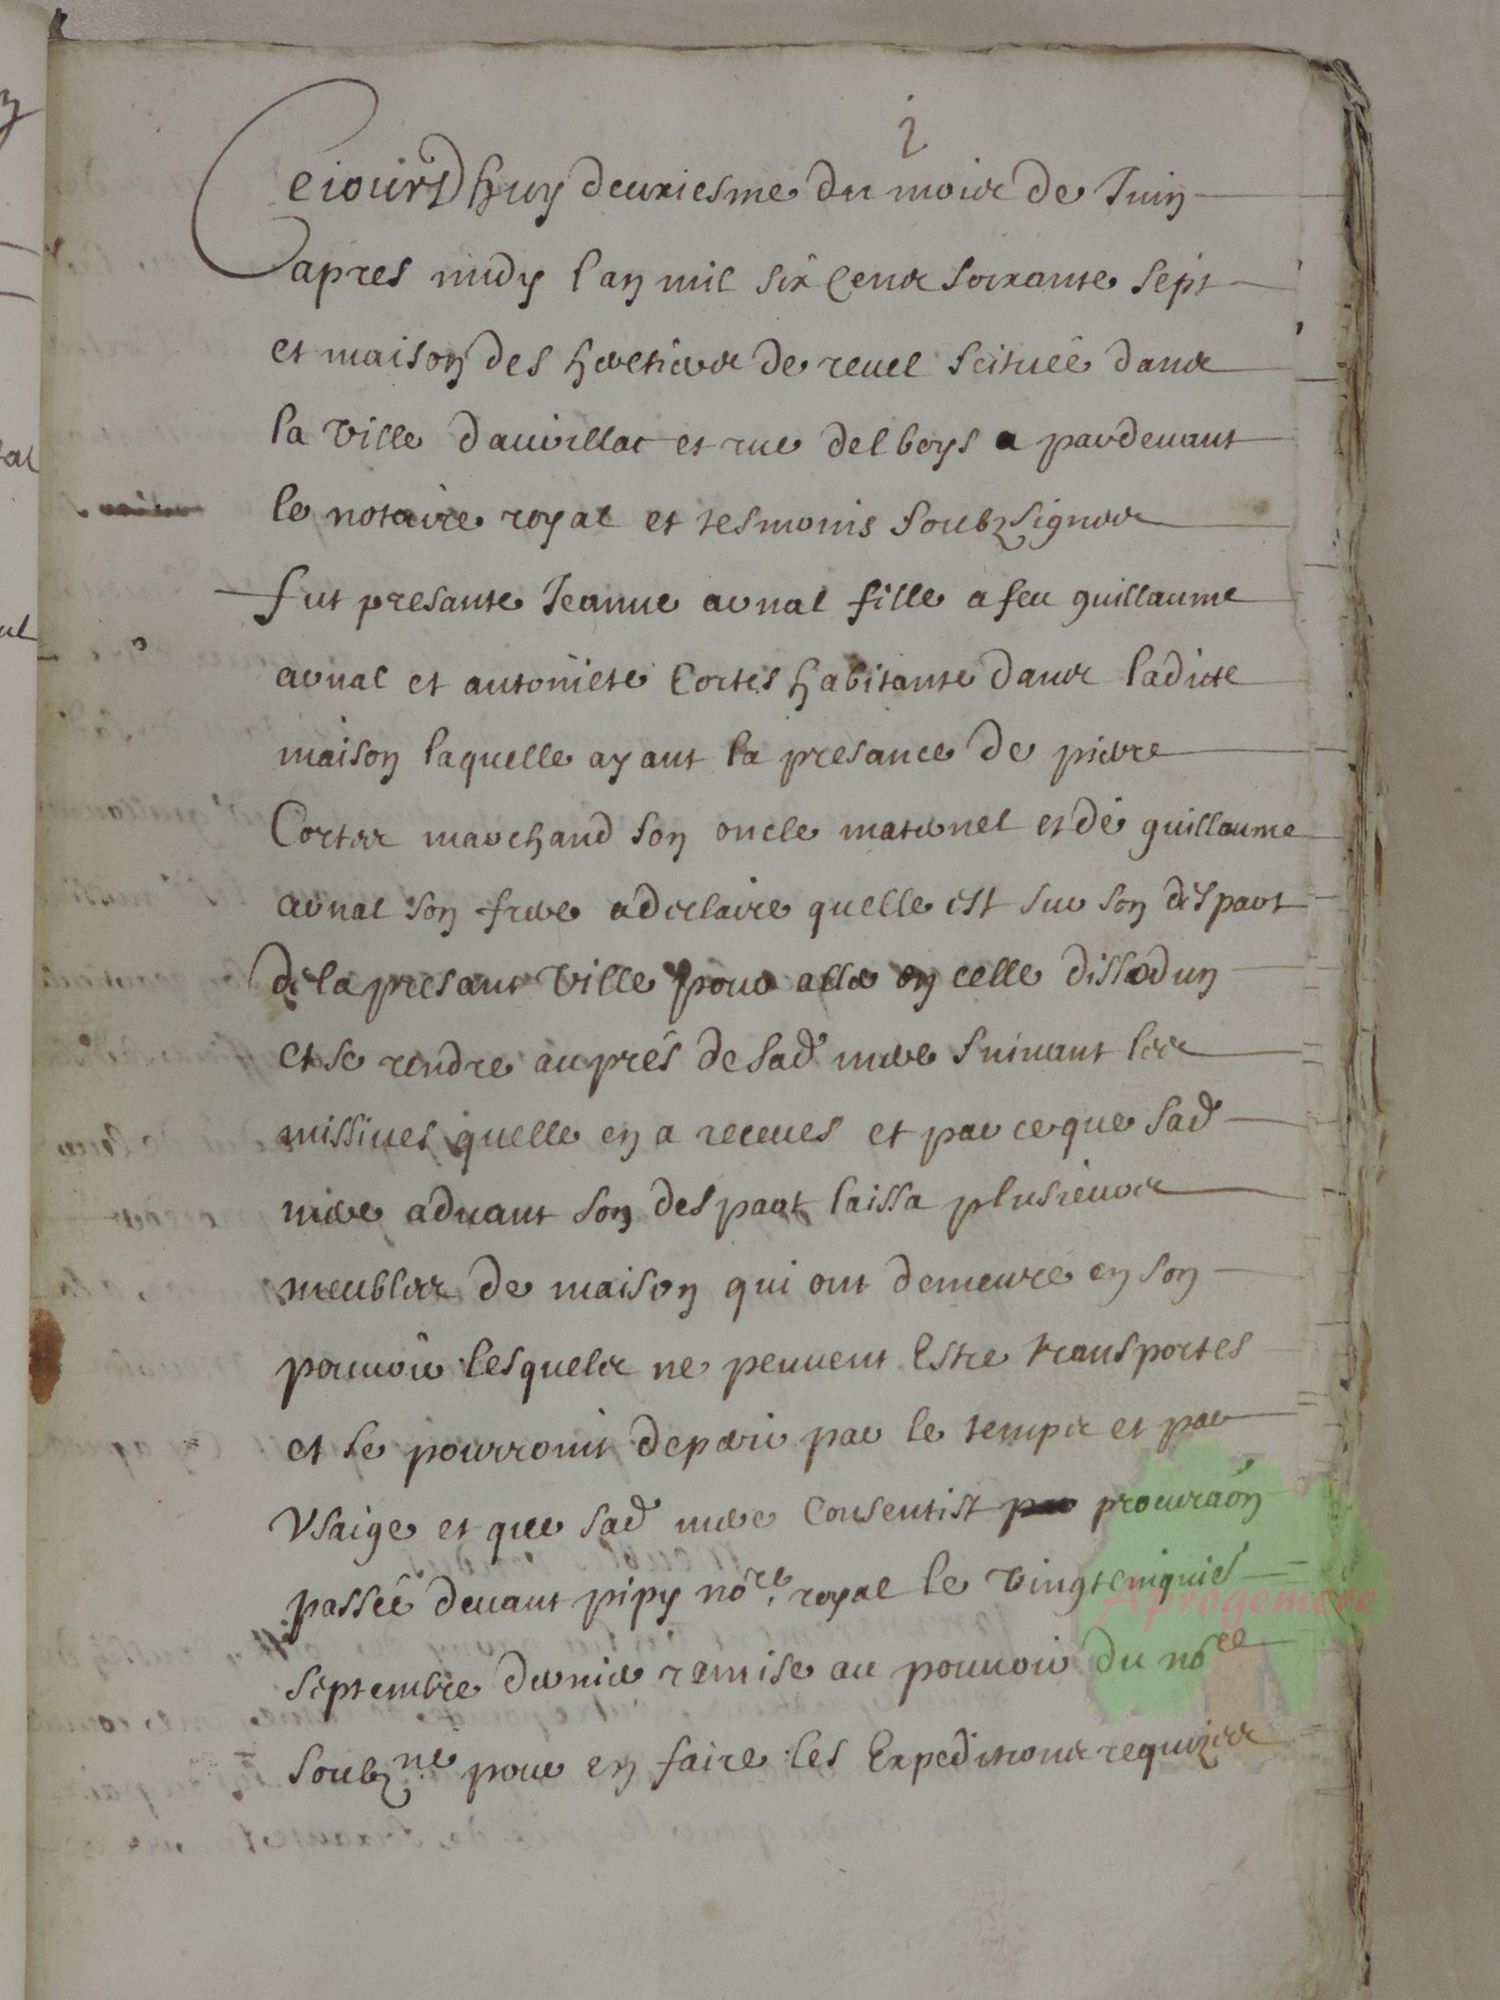 2
Ceiourdhuy deuxiesme du mois de Juin
apres midy lan mil six cens soixante sept
et maison des heretiers de reuel scituée dans
la ville daurillac et rue del boys a pardeuant
le notaire royal et tesmoins soubzsignes
fut presante Jeanne aonal fille a feu guillaume
aonal et antoniete Cortes habitante dans ladicte
maison laquelle ayant la presance de pierre
Cortes marchand son oncle maternel et de guillaume
aonal son frere a declaire quelle est sur son despart
de la presant ville pour aller en celle dissodun
et se rendre aupres de sad mere suiuant les
missiues quelle en a receues et par ce que sad
mere aduant son despart laissa plusieurs
meubles de maison qui ont demeuré en son
pouuoir lesquels ne peuuent Estre transportes
et se pourroint deperir par le temps et par
Vsaige et que sad mere Consentist procuraon
passée deuant pipy nore royal le vingtcinquies
septembre dernier remise au pouuoir du nore
soubzne pour en faire les Expeditions requizes
Aprogemere